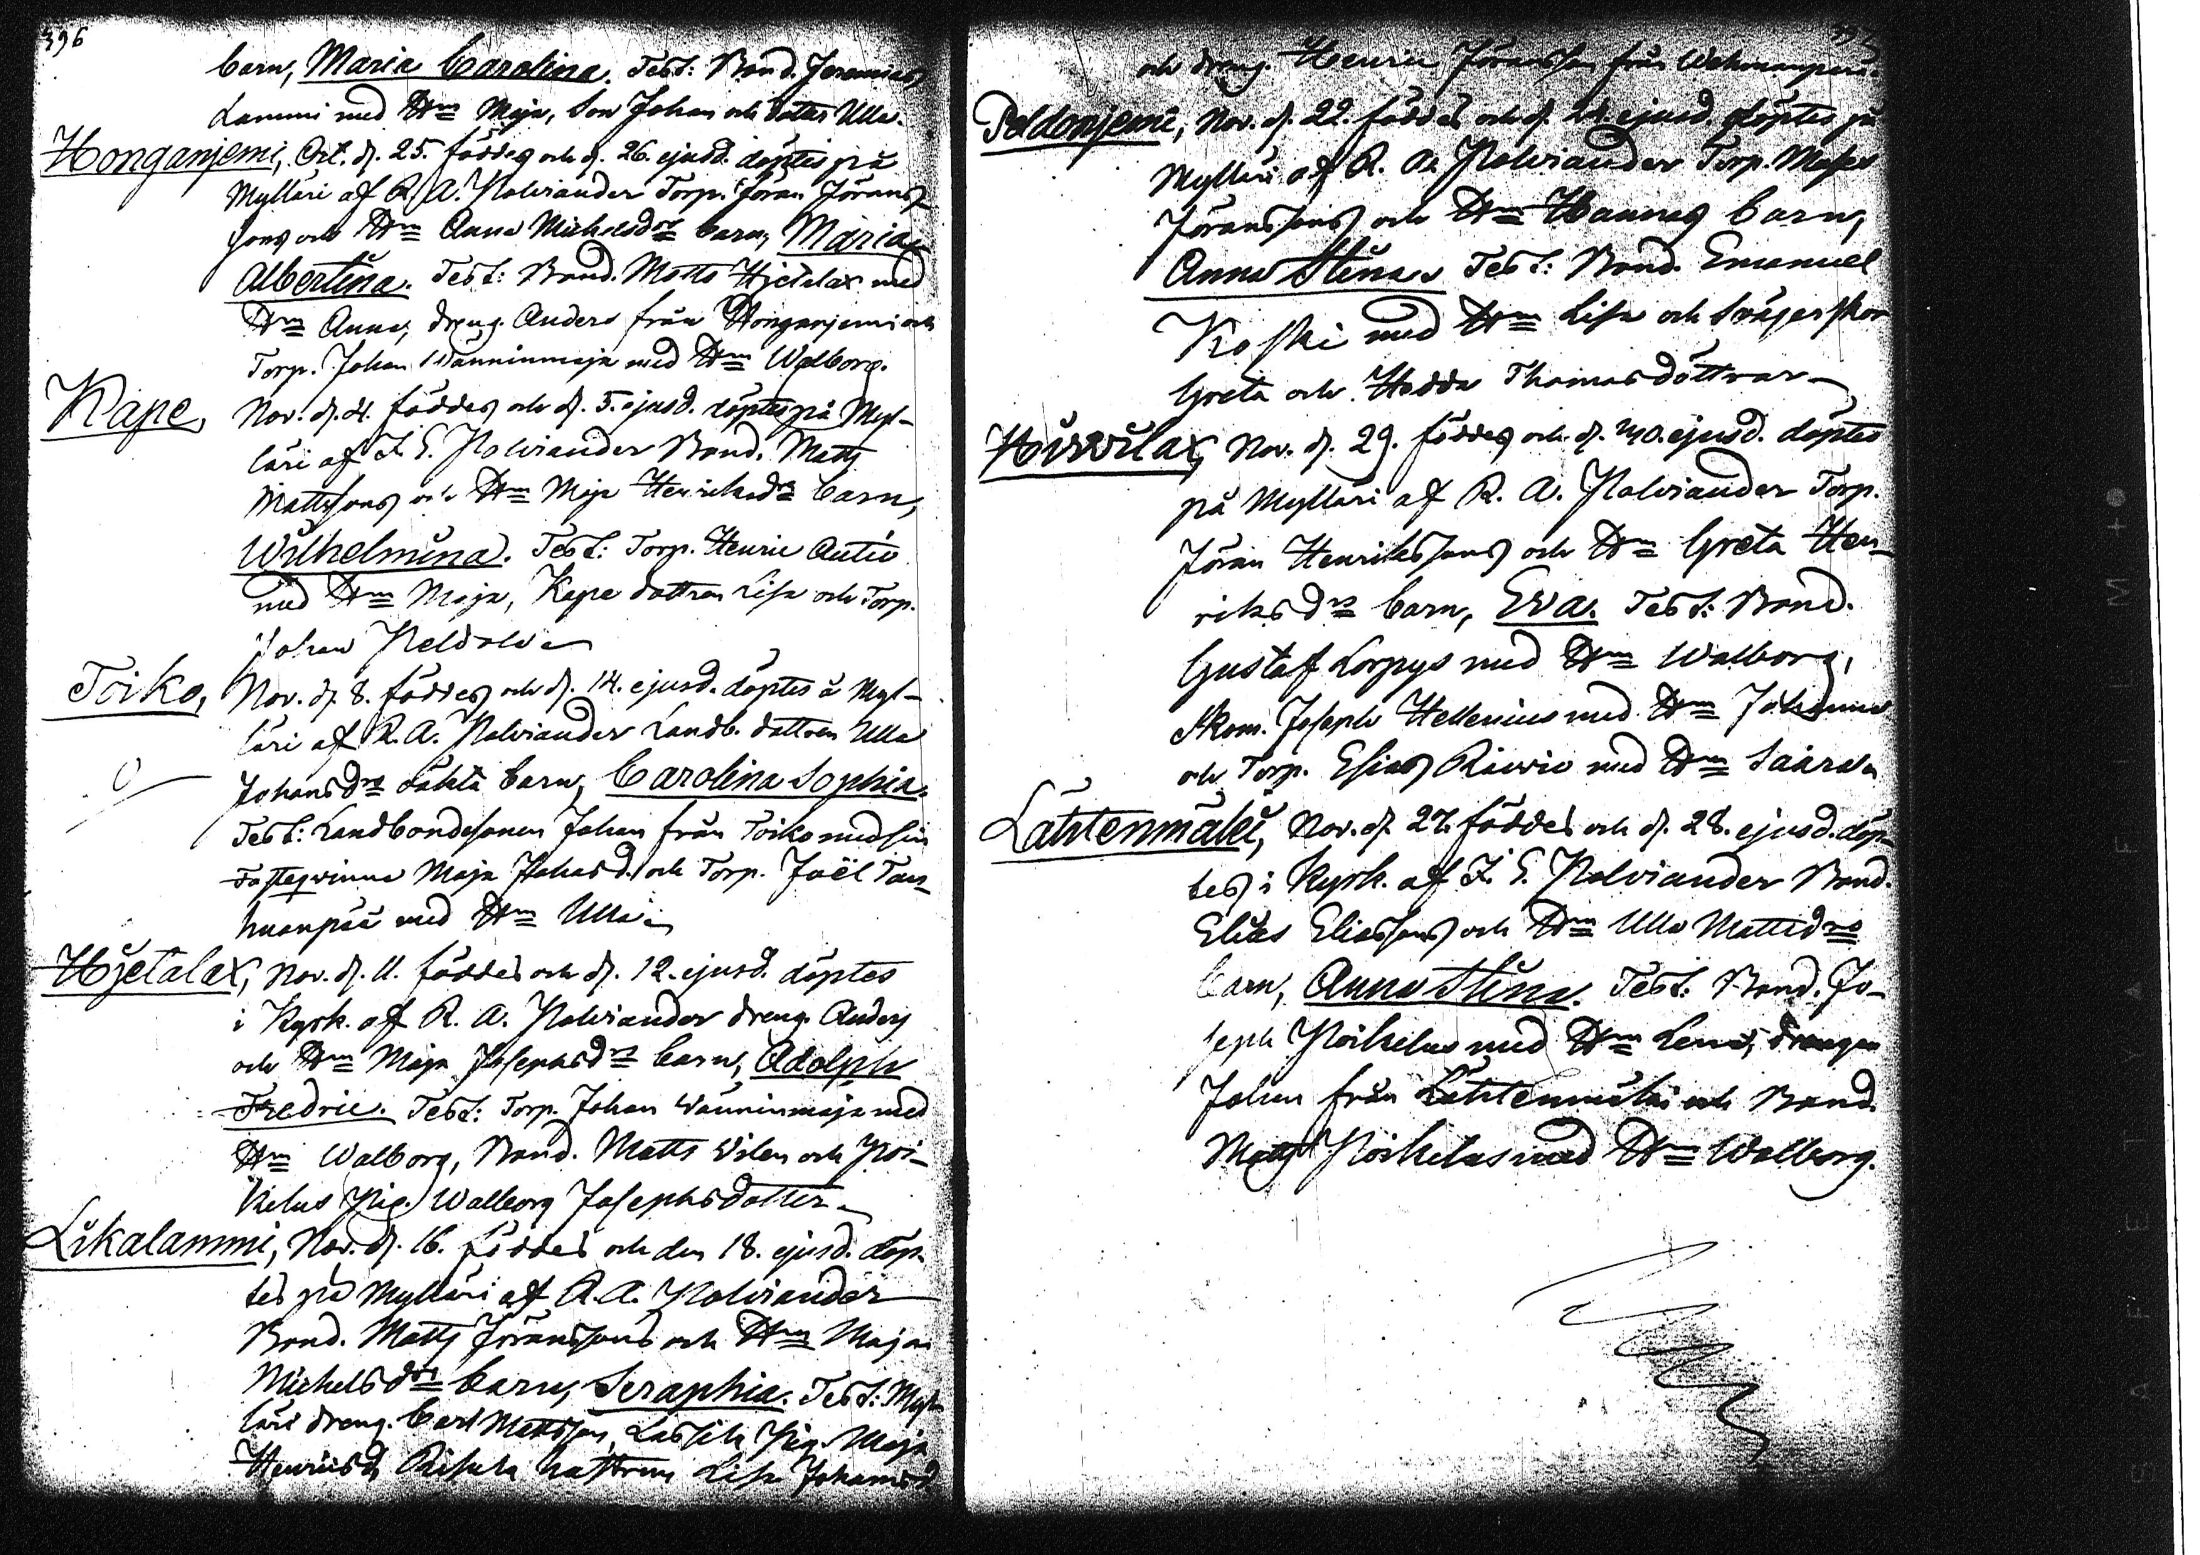 396
barn, Maria Carolina. Test: Bond. Jeremias
Lammi med H:m Maja, Son Johan och dotter Ulla.
Honganjemi, Oct. d. 25. föddes och d. 26. ejusd. döptes på
Mylläri af R. A. Polviander Torp. Jöran Jörans-
sons och H:m Anna Michelsd:rs barn, Maria
Albertina. Test: Bond. Matts Hjetalax med
H:m Anna, dreng. Anders från Honganjemi och
Torp. Johan Wänninmaja med H:m Walborg.
Kape, Nov. d. 4. föddes och d. 5. ejusd. döptes på Myl-
läri af J. E. Polviander Bond. Matts
Mattssons och H:m Maja Henriksd:rs barn,
Wilhelmina. Test: Torp. Henric Autio
med H:m Maja, Kape dottren Lisa och Torp.
Johan Peldola
Toiko, Nov. d. 8. föddes och d. 14. ejusd. döptes å Myl-
läri af R. A. Polviander Landb. dottren Ulla
Johansd:rs oäkta barn, Carolina Sophia.
Test: Landbondesonen Johan från Toiko med sin
Fästeqvinna Maja Johansd. och Torp. Joël Tan-
huanpää med H:m Ulla
Hjetalax, Nov. d. 11. föddes och d. 12. ejusd. döptes
i Kyrk. af R. A. Polviander dreng. Anders
och H:m Maja Josephsd:rs barn, Adolph
Fredric. Test: Torp. Johan Wänninmaja med
H:m Walborg, Bond. Matts Wilen och Poi-
kelus Pig. Walborg Josephsdotter
Likalammi, Nov. d. 16. föddes och den 18. ejusd. döp-
tes på Mylläri af R. A. Polviander
Bond. Matts Jöranssons och H:m Maja
Michelsd:rs barn, Seraphia. Test: Myl-
läri dreng. Carl Mattsson, Lassila Pig. Maja
Henricsd. Lisa Johansd
och dreng. Henric Jöransson från
Peldonjemi, Nov. d. 22. föddes och d. 24. ejusd. döptes på
Mylläri af R. A. Polviander Torp. Moses
Jöranssons och H:m Hannas barn,
Anna Stina. Test: Bond. Emanuel
Koski med H:m Lisa och Svägerskor
Greta och Hedda Thomasdöttrar
Hirvilax, Nov. d. 29. föddes och d. 30. ejusd. döptes
på Mylläri af R. A. Polviander Torp.
Jöran Henrikssons och H:m Greta Hen-
riksd:rs barn, Eva. Test: Bond.
Gustaf Lorpys med H:m Walborg,
Skom. Joseph Hellenius med H:m Johanna
och Torp. Esias Raivio med H:m Saara
Lähtenmäki, Nov. d. 27. föddes och d. 28. ejusd. döp-
tes i Kyrk. af J. E. Polviander Bond.
Elias Eliassons och H:m Ulla Mattsd:rs
barn, Anna Stina. Test: Bond. Jo-
seph Poikelus med H:m Lena, drengen
Johan från Lähtenmäki och Bond.
Matts Poikelus med H:m Walborg.
SAFETY FILM